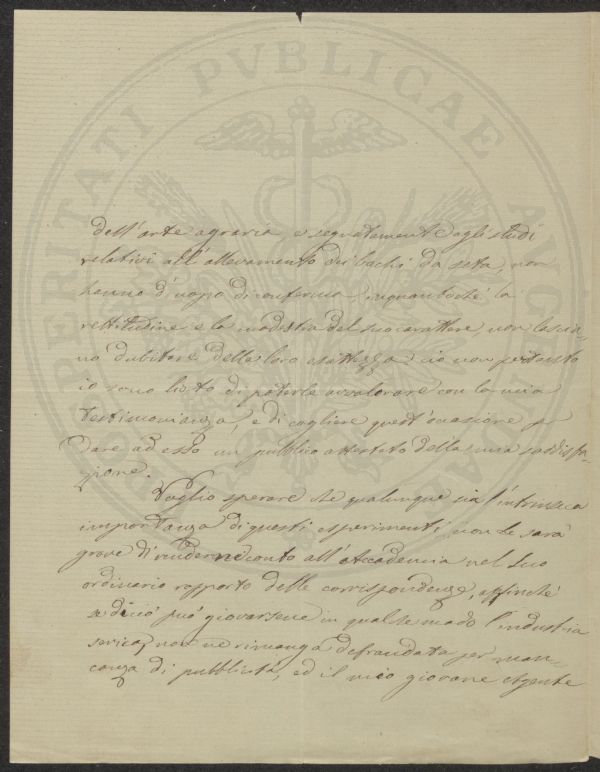 dell'arte agraria e segnatamente agli studi
relativi all'allevamento dei bachi da seta, non
hanno d'uopo di conferma inquantoché la
rettitudine e la modestia del suo carattere, non lascia-
no dubitare della loro esattezza ciò non pertanto
io sono lieto di poterle avvalorare con la mia
testimonianza, e di cogliere quest'occasione per
dare ad esso un pubblico attestato della mia soddisfa-
zione.
Voglio sperare che qualunque sia l'intrinseca
importanza di questi esperimenti, non Le sarà
grave di renderne conto all'Accademia nel Suo
ordinario rapporto delle corrispondenze, affinché
se di ciò può giovarsene in qualche modo l'industria
serica, non ne rimanga defraudata per man-
canza di pubblicità, ed il mio giovane Agente
PROSPERITATI PVBLICAE AVGENDAE